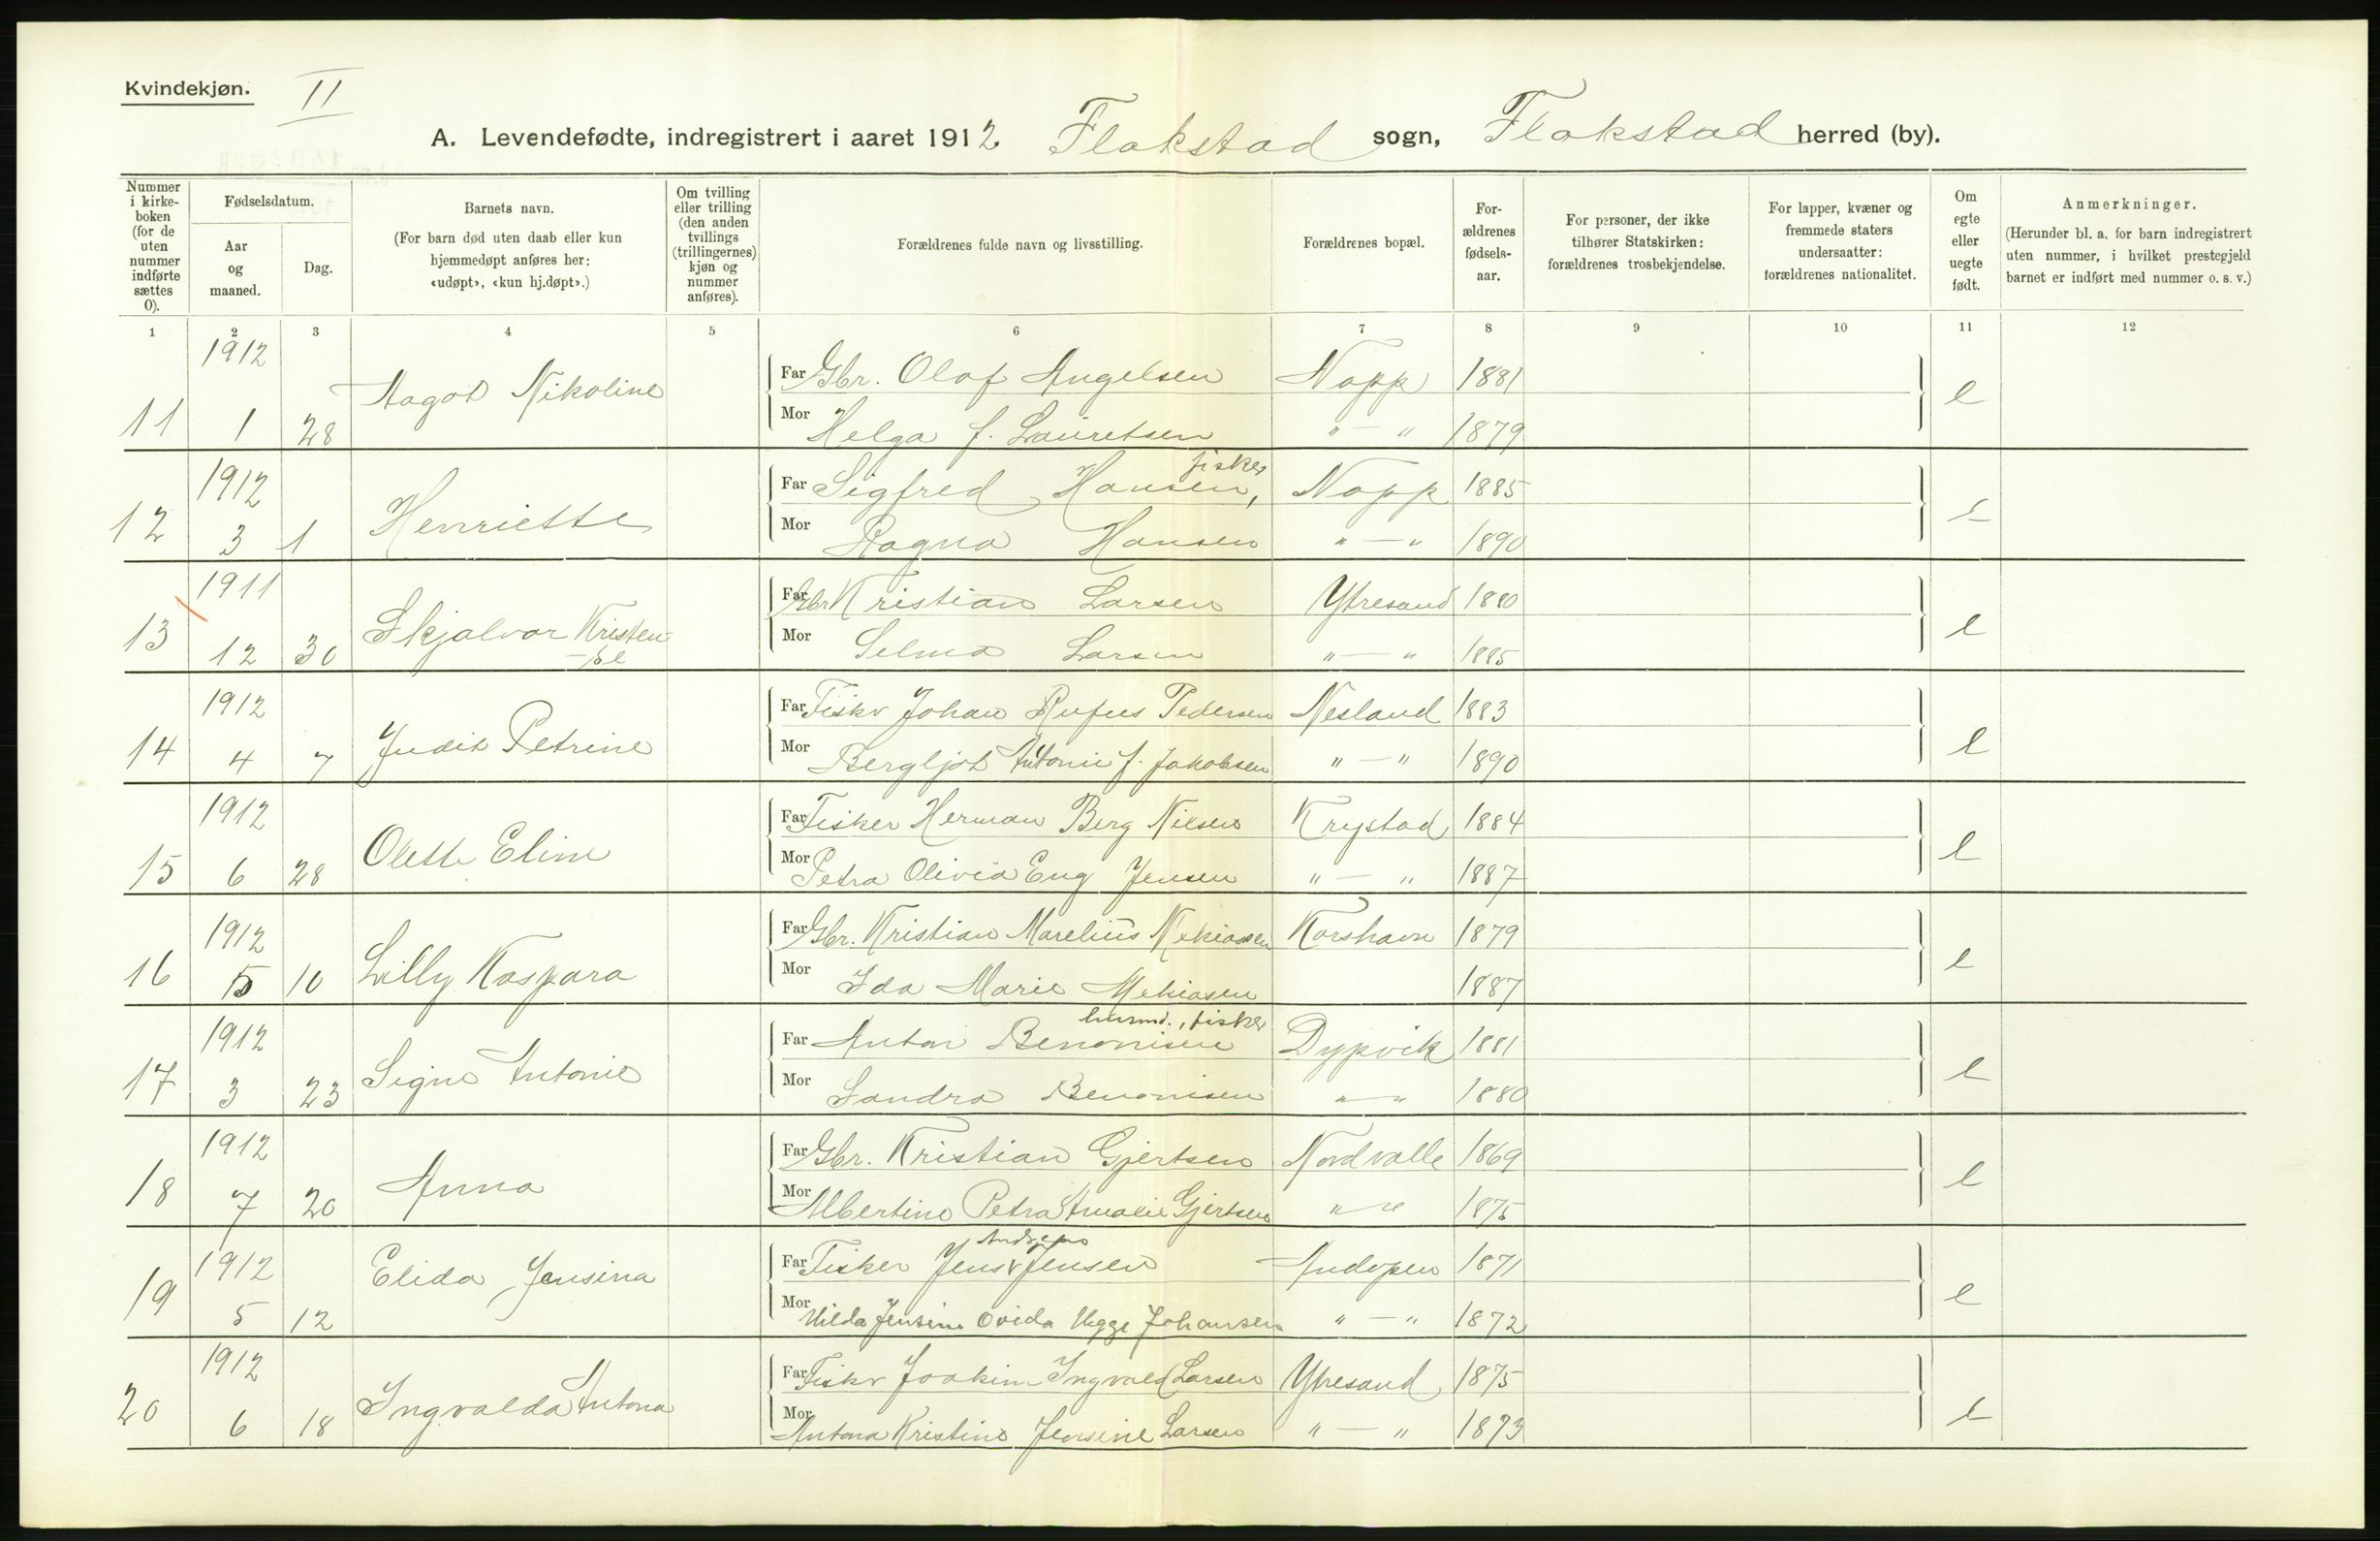 Kvindekjøn. II
A. Levendefødte, indregistrert i aaret 1912 Flakstad sogn, Flakstad herred (by).
Nummer i kirkeboken (for de uten nummer indførte sættes 0).
Fødselsdatum.
Aar og maaned.
Dag.
Barnets navn.
(For barn død uten daab eller kun hjemmedøpt anføres her: «udøpt», «kun hj.døpt».)
Om tvilling eller trilling (den anden tvillings (trillingernes) kjøn og nummer anføres).
Forældrenes fulde navn og livsstilling.
Forældrenes bopæl.
Forældrenes fødselsaar.
For personer, der ikke tilhører Statskirken: forældrenes trosbekjendelse.
For lapper, kvæner og fremmede staters undersaatter: forældrenes nationalitet.
Om egte eller uegte født.
Anmerkninger.
(Herunder bl. a. for barn indregistrert uten nummer, i hvilket prestegjeld barnet er indført med nummer o. s. v.)
1 2 3 4 5 6 7 8 9 10 11 12
1912 Far Gbr. Olaf Angelsen Napp 1881
11 1 28 Aagot Nikoline e
Mor Helga f. Lauretsen " — " 1879
1912 Far Sigfred Hansen, fisker Napp 1885
12 3 1 Henriette e
Mor Ragna Hansen " — " 1890
1911 Far Gbr Kristian Larsen Ytresand 1880
13 12 30 Skjalvor Kristen-se e
Mor Selma Larsen " — " 1885
1912 Far Fiskr Johan Rufus Pedersen Nesland 1883
14 4 7 Judit Petrine e
Mor Bergljot Antonie f. Jakobsen " — " 1890
1912 Far Fisker Herman Berg Nilsen Krystad 1884
15 6 28 Olette Eline e
Mor Petra Olivia Eng Jensen " — " 1887
1912 Far Gbr. Kristian Marelius Mekiassen Korshavn 1879
16 5 10 Lilly Kaspara e
Mor Ida Marie Mekiasen 1887
1912 Far Anton Benonisen husmd., fisker Dypvik 1881
17 3 23 Signe Antonie e
Mor Sandra Benonisen " — " 1880
1912 Far Gbr. Kristian Gjertsen Nordvalle 1869
18 7 20 Anna e
Mor Albertine Petra Amalie Gjertsen " — " 1875
1912 Far Fisker Jens Andreas Jensen Andopen 1871
19 5 12 Elida Jensina e
Mor Hilda Jensine Ovida Johansen " — " 1872
1912 Far Fiskr Joakim Ingvald Larsen Ytresand 1875
20 6 18 Ingvalda Antona e
Mor Antona Kristine Jensine Larsen " — " 1873